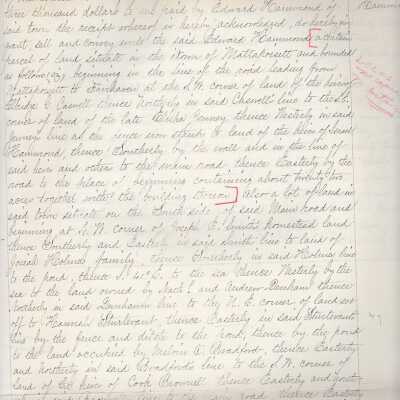 three thousand dollars to me paid by Edward Hammond of
said town the receipt whereof is hereby acknowledged, do hereby give
grant, sell and convey unto the said Edward Hammond [a certain
parcel of land situate in the town of Mattapoisett and bounded
as follows viz, beginning in the line of the road leading from
Mattapoisett to Fairhaven at the S.W. corner of land of the heirs of
Elledge G. Caswell thence Northerly in said Caswell's line to the S.E.
corner of land of the late Jenney, thence Westerly in said
Jenney line as the fence now stands to land of the heirs of
Hammond, thence Southerly by the wall and in the line of
said heirs and others to the main road thence Easterly by the
road to the place of beginning containing about twenty two
acres together with the building thereon] Also a lot of land in
said town situate on the South side of said Main road and
beginning at S. W. corner of Joseph E. Smith's homestead land
thence Southerly and Easterly in said Smith line to land of
Josiah Holmes family, thence Southerly in said Holmes line
to the pond, thence S. 4° E. to the sea thence Westerly by the
sea to the land owned by and Andrew Dunham thence
Northerly in said Dunham line to the N. E. corner of land set
off to Hannah Sturtevant, thence Easterly in said Sturtevant
line by the fence and ditch to the pond, thence by the pond
to the land occupied by A. Bradford, thence Easterly
and Northerly in said Bradford's line to the S.W. corner of
land of the heirs of Cook Brownell thence Easterly and
road thence Easterly
Hammond